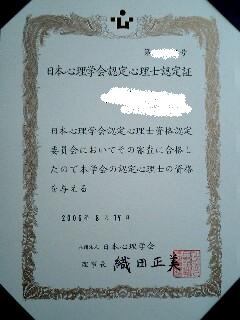 第 号
日本心理学会認定心理士認定証
日本心理学会認定心理士資格認定
委員会においてその審査に合格し
たので本学会の認定心理士の資格
を与える
2006年 8月 日
社団法人 日本心理学会
理事長 織田正美